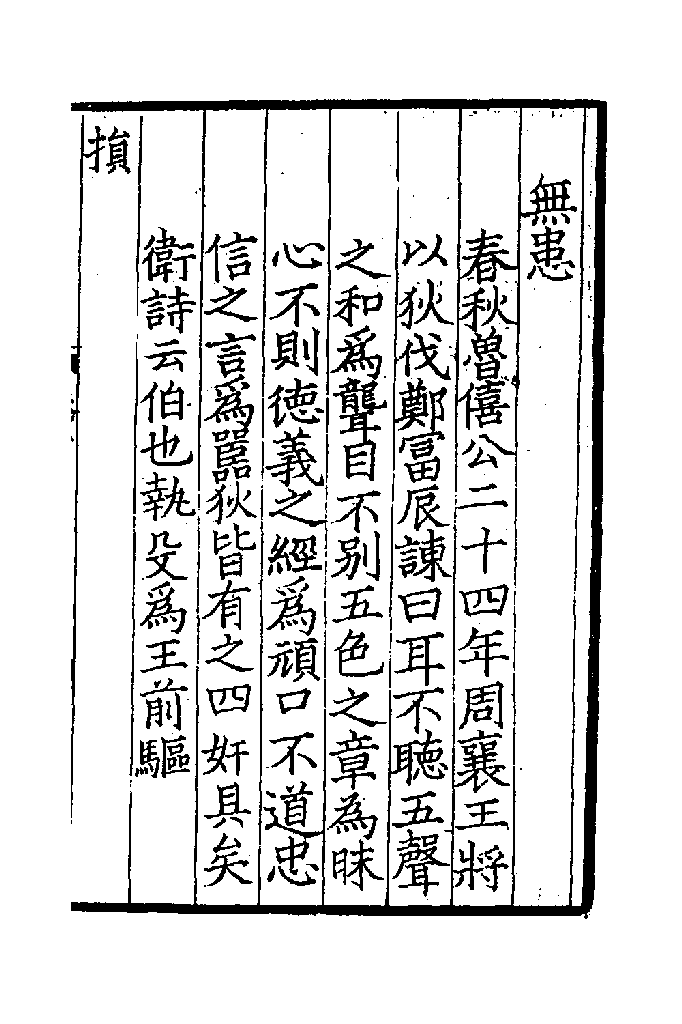 無患
春秋魯僖公二十四年周襄王將
以狄伐鄭冨辰諫曰耳不聴五聲
之和爲聾目不别五色之章為昧
心不則徳義之經爲頑口不道忠
信之言爲嚚狄皆有之四奸具矣
衛詩云伯也執殳爲王前驅
損